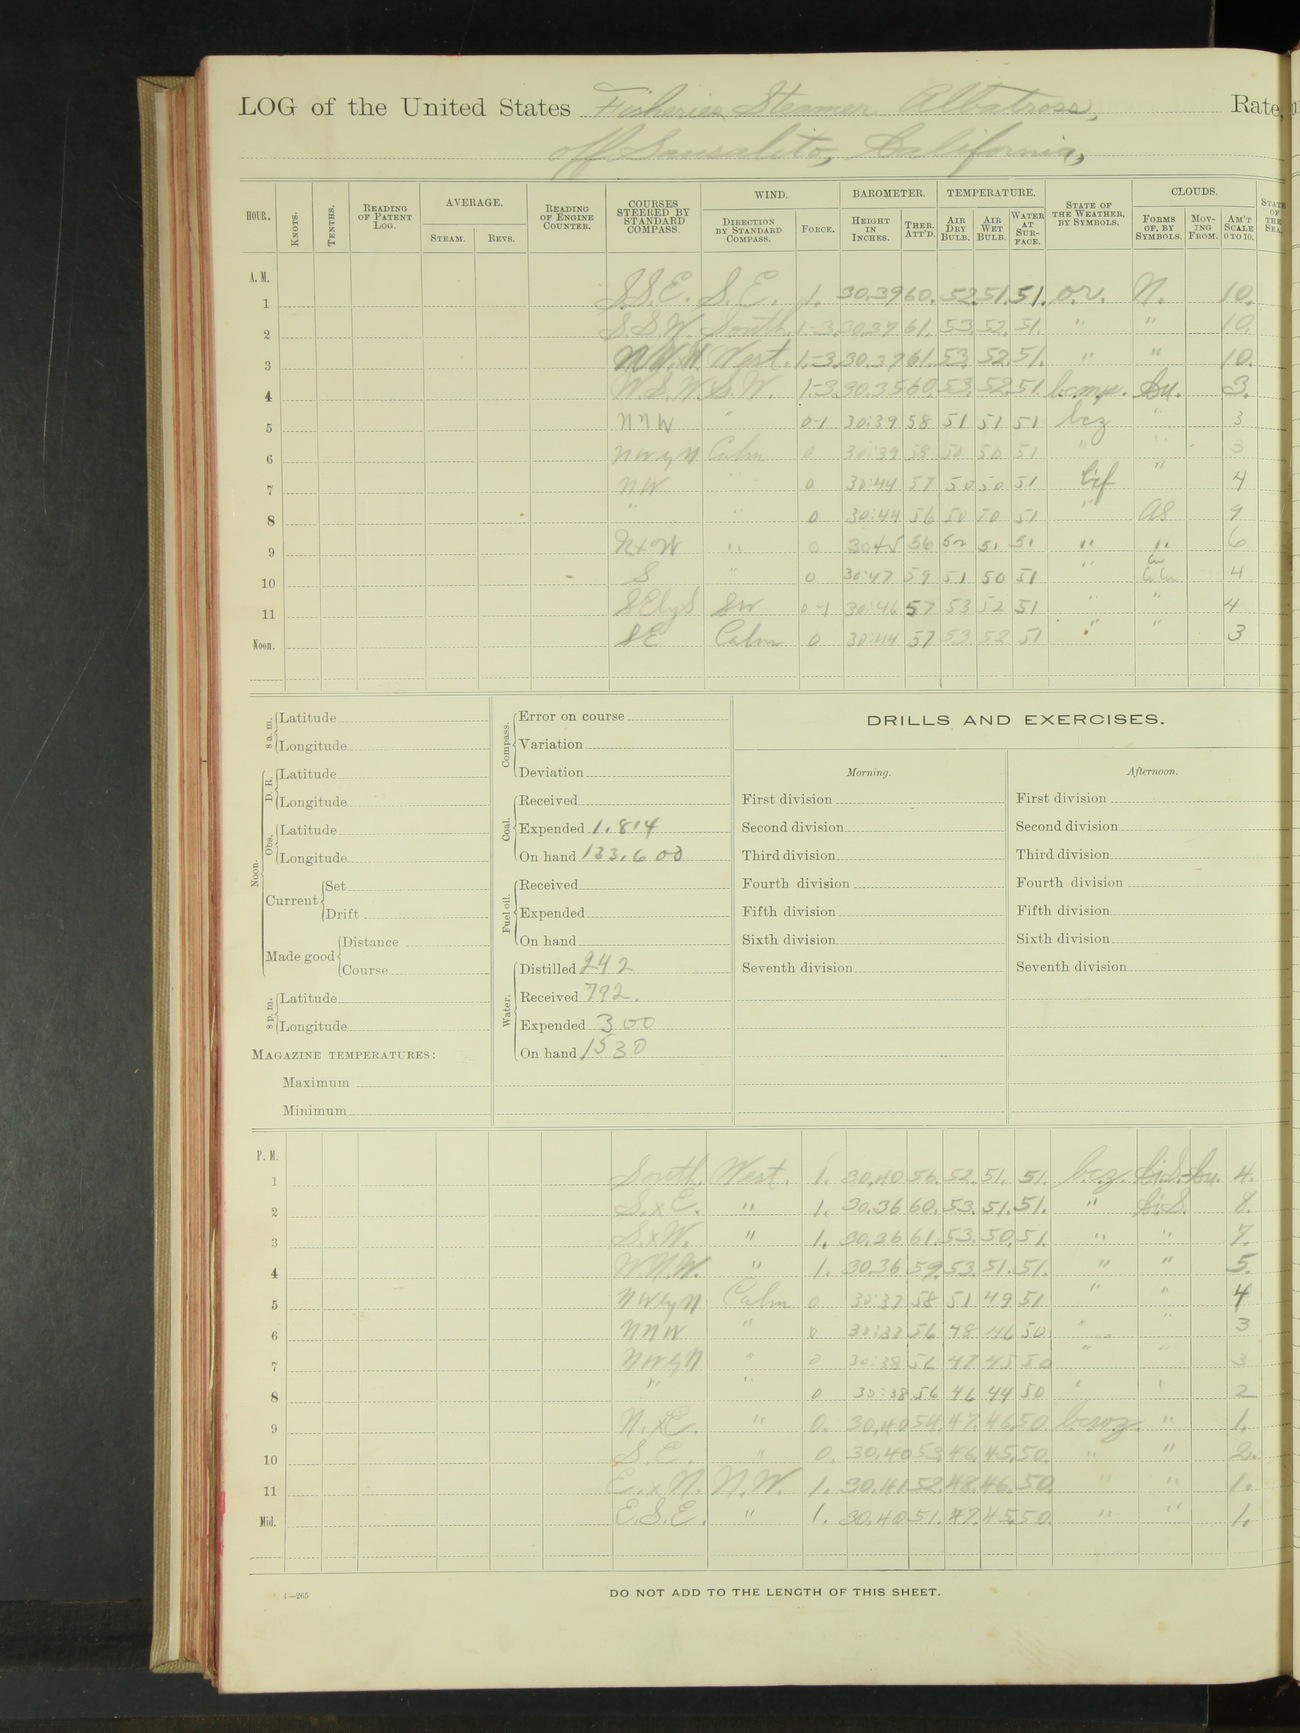 LOG of the United States Fisheries Steamer Albatross, Rate,
off Sausalito, California,
HOUR. KNOTS. TENTHS. READING OF PATENT LOG. AVERAGE. STEAM. REVS. READING OF ENGINE COUNTER. COURSES STEERED BY STANDARD COMPASS. WIND. DIRECTION BY STANDARD COMPASS. FORCE. BAROMETER. HEIGHT IN INCHES. THER. ATT'D. TEMPERATURE. AIR DRY BULB. AIR WET BULB. WATER AT SURFACE. STATE OF THE WEATHER, BY SYMBOLS. CLOUDS. FORMS OF, BY SYMBOLS. MOVING FROM. AM'T SCALE 0 TO 10. STATE OF THE SEA.
A. M.
1 S.S.E. S.E. 1. 30.39 60. 52. 51. 51. o.r. N. 10.
2 S.S.W. South. 1-3. 30.37 61. 53. 52. 51. " " 10.
3 West. 1-3. 30.37 61. 53. 52. 51. " " 10.
4 W.S.W. S.W. 1-3. 30.35 60. 53. 52. 51. 3.
5 NNW " 0-1 30:39 58 51 51 51 bcz " 3
6 NW by N Calm 0 30:39 58 50 50 51 " " 3
7 NW " 0 30:44 57 50 50 51 " 4
8 " " 0 30:44 56 50 50 51 " 9
9 NxW " 0 30:45 56 52 51 51 " " 6
10 S " 0 30:47 59 51 50 51 " 4
11 SE by S SW 0-1 30:46 57 53 52 51 " " 4
Noon. SE Calm 0 30:44 57 53 52 51 " " 3
8 a. m. Latitude
Longitude
Noon. D. R. Latitude
Longitude
Obs. Latitude
Longitude
Current Set
Drift
Made good Distance
Course
8 p. m. Latitude
Longitude
MAGAZINE TEMPERATURES:
Maximum
Minimum
Compass. Error on course
Variation
Deviation
Coal. Received
Expended 1.814
On hand 133.600
Fuel oil. Received
Expended
On hand
Water. Distilled 242
Received 792.
Expended 300
On hand 1530
DRILLS AND EXERCISES.
Morning. Afternoon.
First division First division
Second division Second division
Third division Third division
Fourth division Fourth division
Fifth division Fifth division
Sixth division Sixth division
Seventh division Seventh division
P. M.
1 South. West. 1. 30.40 56. 52. 51. 51. b.c.z. 4.
2 S.xE. " 1. 30.36 60. 53. 51. 51. " Ci.S. 8.
3 S.xW. " 1. 30.36 61. 53. 50. 51. " " 7.
4 W.N.W. " 1. 30.36 59. 53. 51. 51. " " 5.
5 NW by N Calm 0 30:37 58 51 49 51 " " 4
6 NNW " 0 30:37 56 48 46 50 " " 3
7 NW by N " 0 30:38 56 47 45 50 " " 3
8 " " 0 30:38 56 46 44 50 " " 2
9 N.xE. " 0. 30.40 54. 47. 46. 50. " 1.
10 S.E. " 0. 30.40 53. 46. 45. 50. " " 2.
11 E.xN. N.W. 1. 30.41 52. 48. 46. 50. " " 1.
Mid. E.S.E. " 1. 30.40 51. 47. 45. 50. " " 1.
4—265
DO NOT ADD TO THE LENGTH OF THIS SHEET.